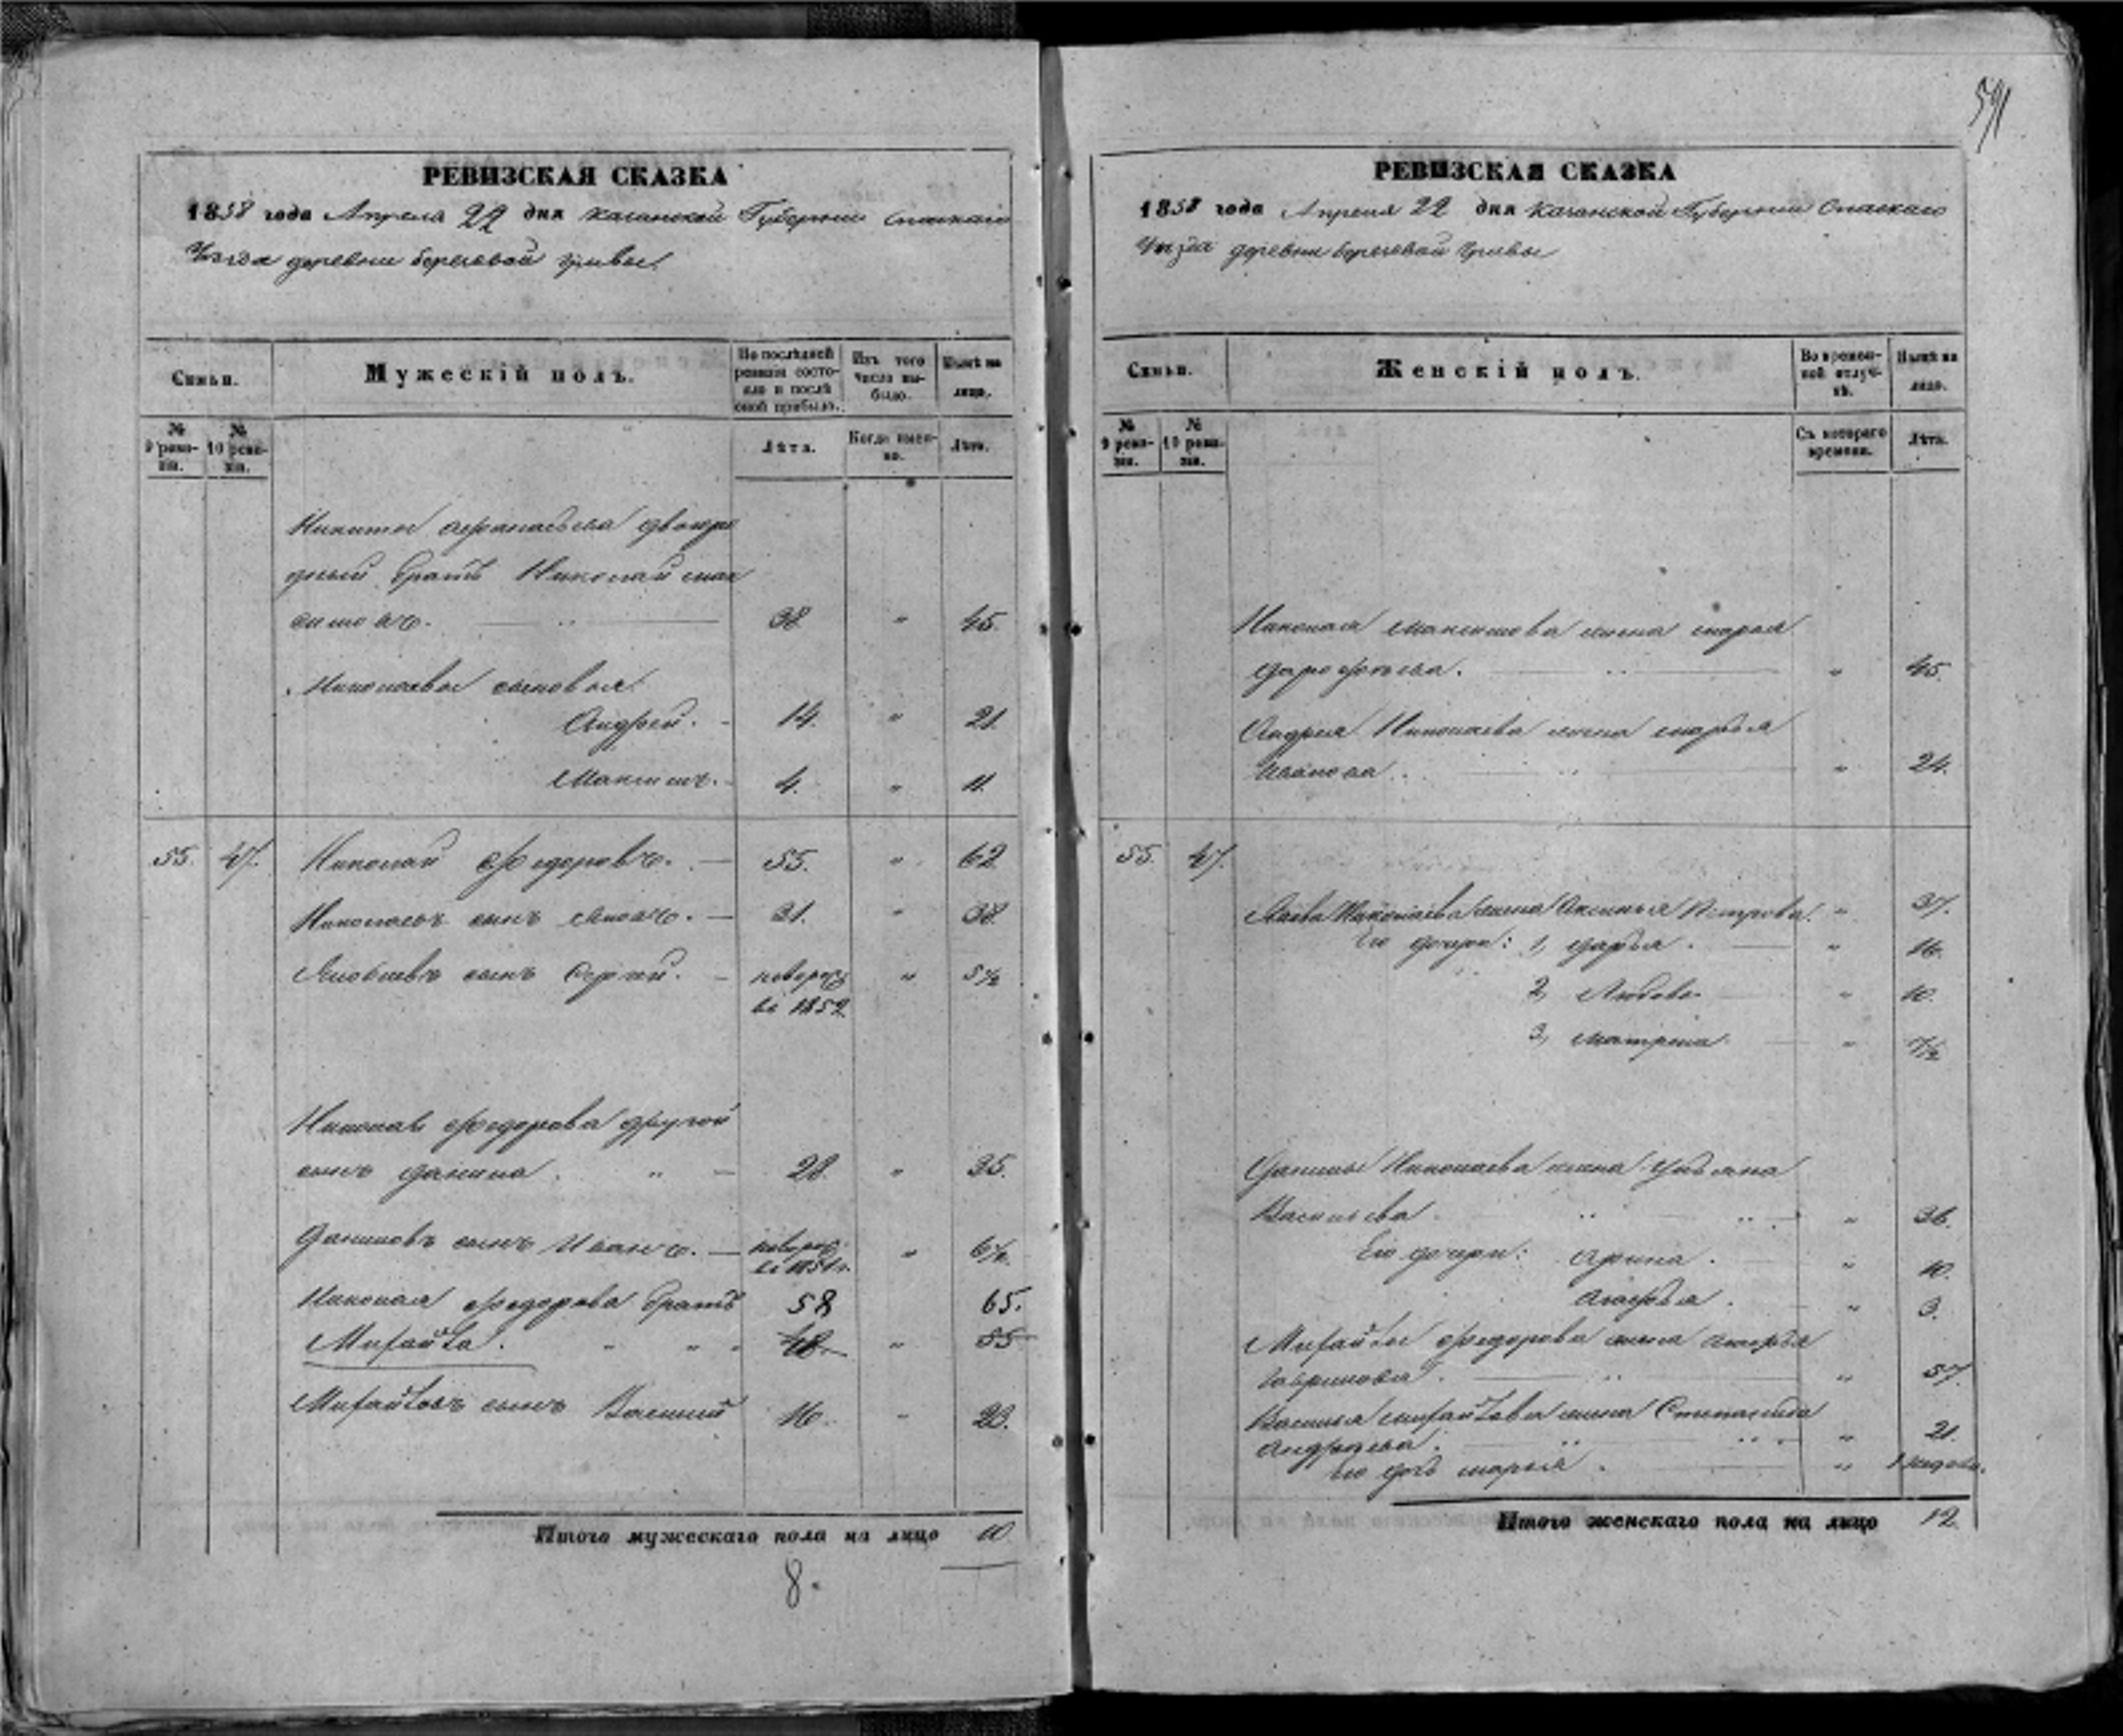 591
РЕВИЗСКАЯ СКАЗКА
1858 года Апреля 22 дня Казанской Губернии Спаскаго
Уезда деревни береговой гривы.
Семьи.
Мужескій полъ.
По послѣдней ревизіи состояло и послѣ оной прибыло.
Изъ того числа выбыло.
Нынѣ на лицо.
№ 9 ревизіи.
№ 10 ревизіи.
Лѣта.
Когда именно.
Лѣта.
Никиты Афанасьева двоюро
дный братъ Николай Мак
симовъ. 38 " 45.
Николаевы сыновья
Андрей. 14. " 21.
Максимъ. 4. " 11.
55. 47. Николай Федоровъ. 55. " 62
Николаевъ сынъ 31. " 38.
сынъ Сергей. новорож " 5½
въ 1852
Николая Федорова другой
сынъ Данила. 28. " 35.
Даниловъ сынъ Иванъ. новорож. " 6½.
въ 1851г.
Николая Федорова братъ 58 65.
48 " 55
сынъ Василий 16. " 23.
Итого мужескаго пола на лицо 10.
8.
РЕВИЗСКАЯ СКАЗКА
1858 года Апреля 22 дня Казанской Губернии Спаскаго
Уезда деревни береговой гривы
Семьи.
Женскій полъ.
Во временной отлучкѣ.
Нынѣ на лицо.
№ 9 ревизіи.
№ 10 ревизіи.
Съ котораго времени.
Лѣта.
Николая Максимова жена Марья
Дорофеева. " 45.
Андрея Николаева жена Марья
Иванова. " 24.
55. 47.
Николаева жена Аксинья Петрова. " 37.
Его дочери: 1, Дарья. " 16.
2, Любовь " 10.
3, Матрена " 7½
Данилы Николаева жена Ульяна
Васильева. " 36.
Его дочери: Арина. " 10.
Агафья. " 3.
Федорова жена
Гаврилова. " 57.
Василья жена Степанида
Андреева. " 21.
Его дочь Марья. " 1 недели.
Итого женскаго пола на лицо 12.